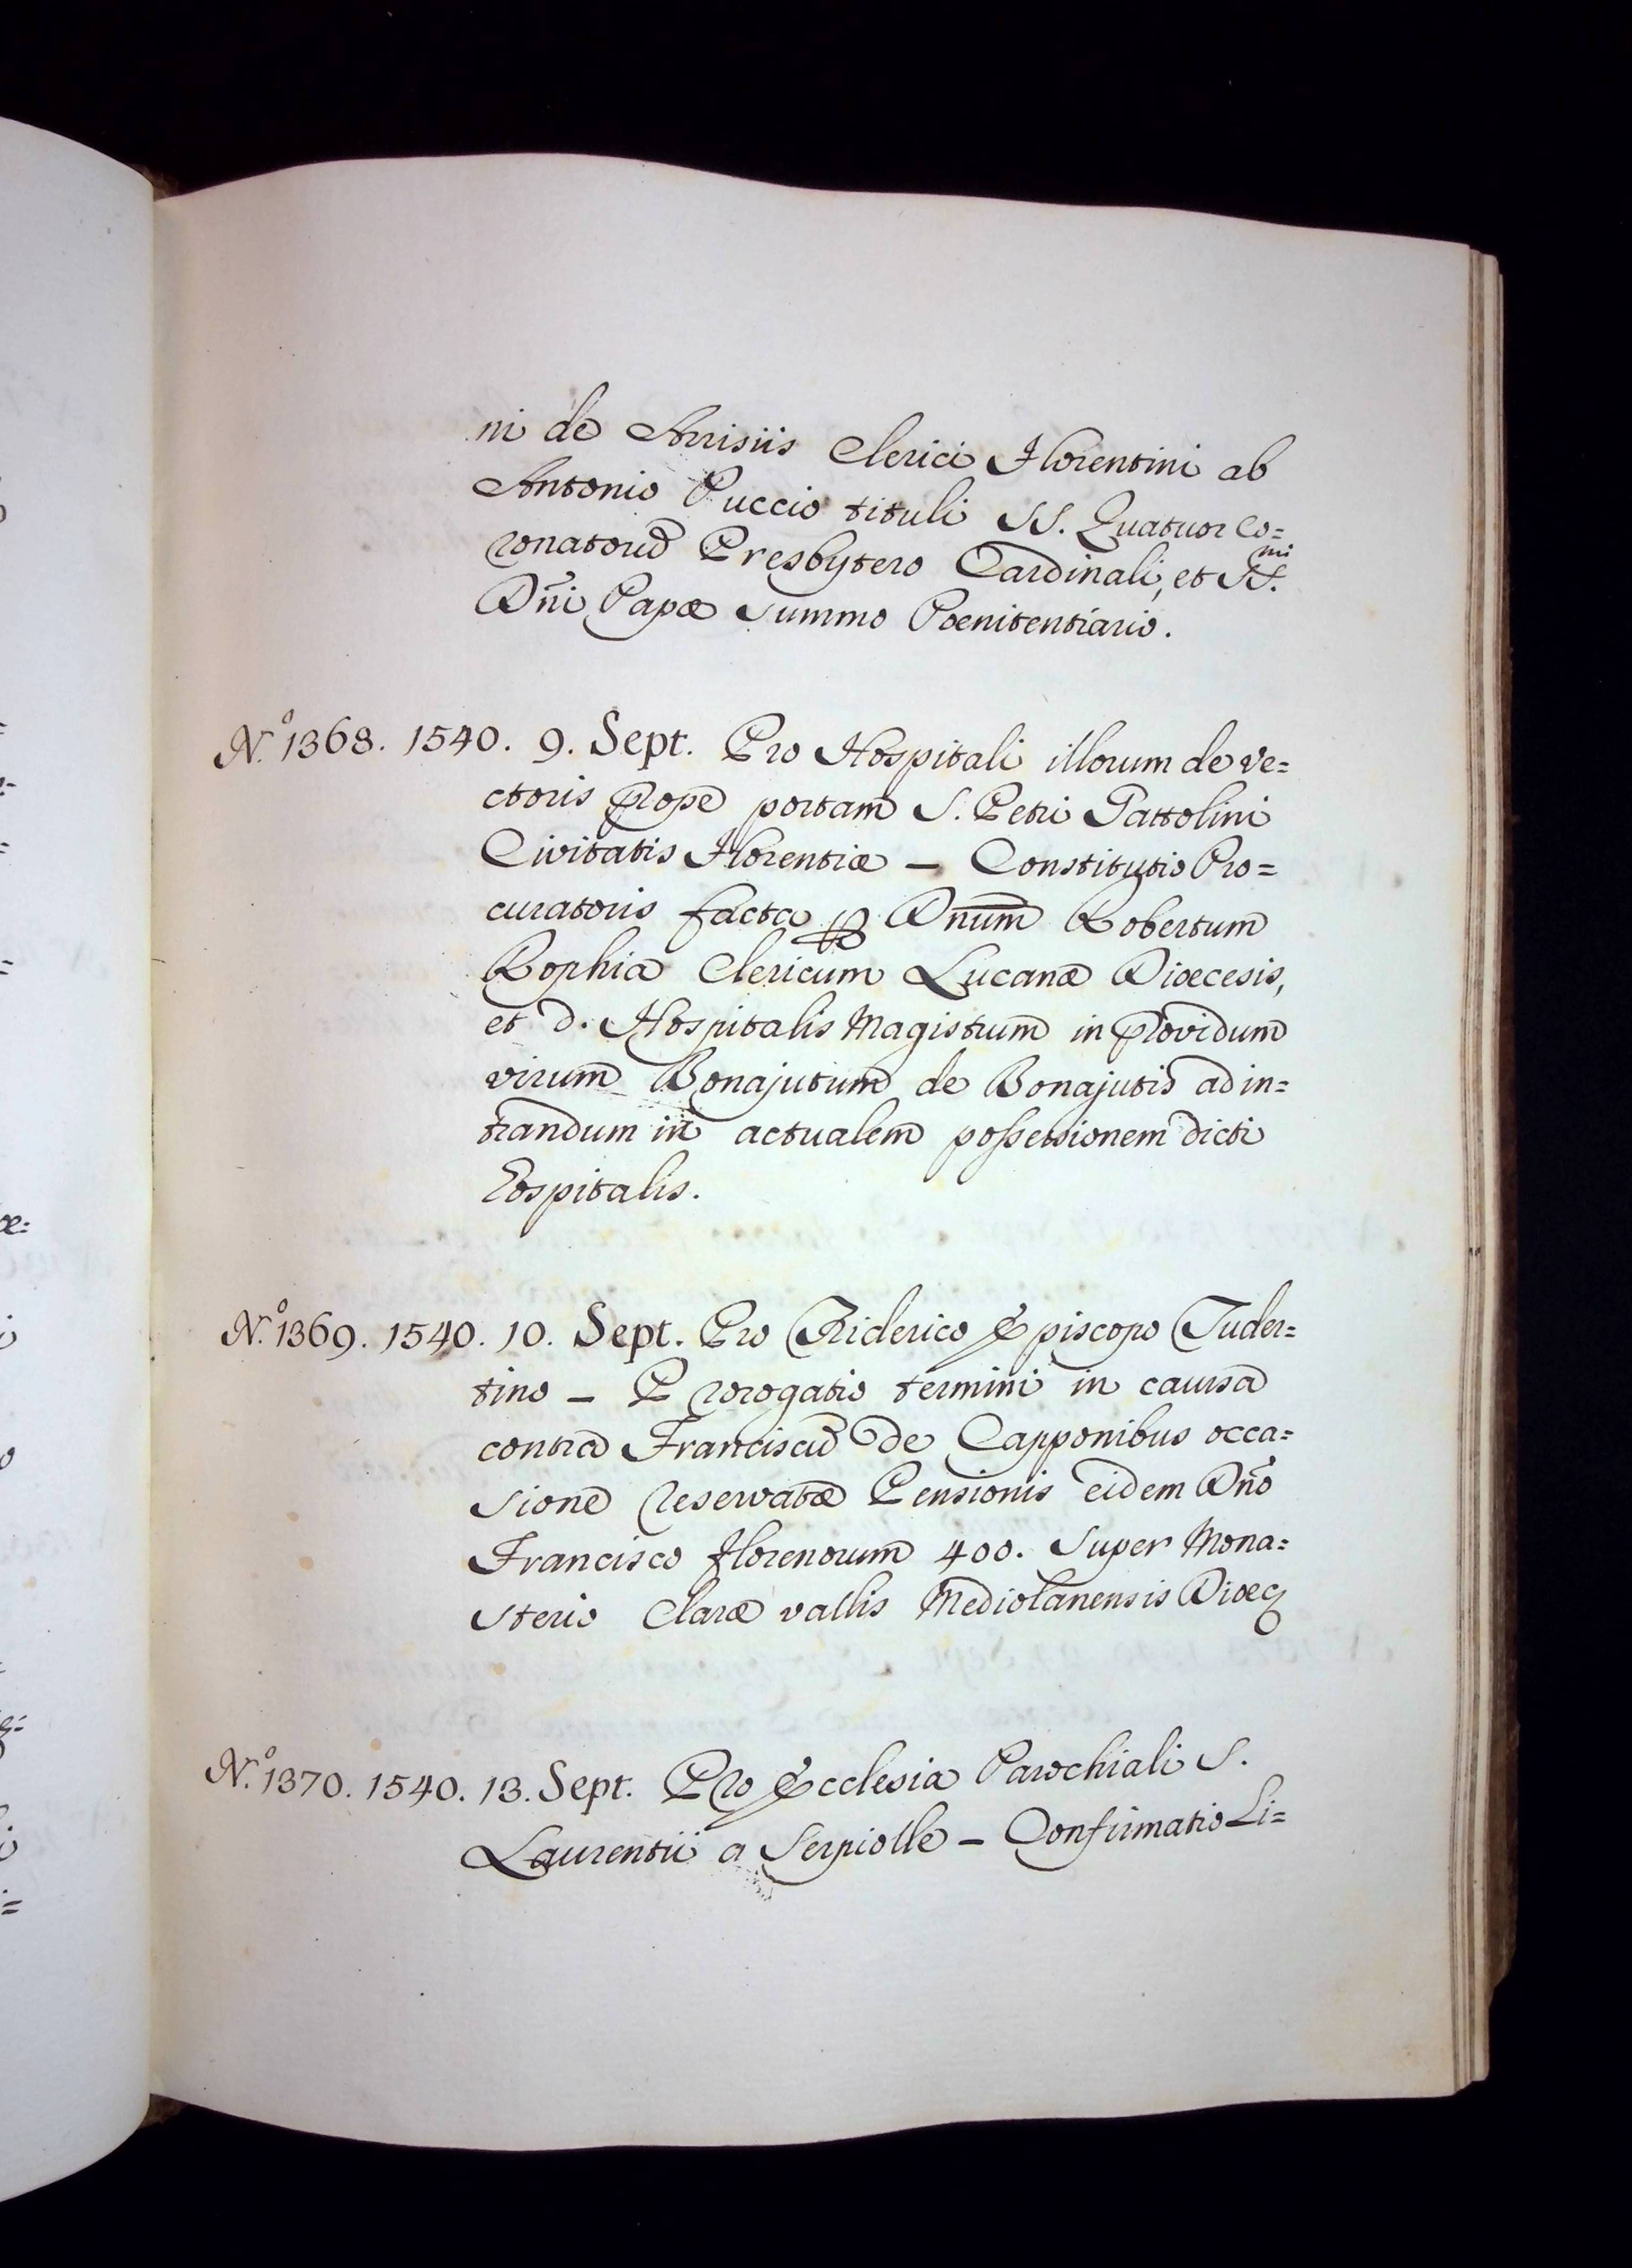 ni de Arrisiis Clerici Florentini ab
Antonio Puccio tituli SS. Quatuor Co=
ronatorũ Presbytero Cardinali, et SS.mi
Dñi Papæ Summo Poenitentiario.
N.º 1368. 1540. 9. Sept. Pro Hospitali illorum de Ve=
ctoris prope portam S. Petri Gattolini
Civitatis Florentiæ - Constitutio Pro=
curatoris facta ꝑ Dnum̄ Robertum
Rophia Clericum Lucanæ Dioecesis,
et d. Hospitalis Magistrum in providum
virum Bonajutum de Bonajutis ad in=
trandum in actualem possessionem dicti
Hospitalis.
N.º 1369. 1540. 10. Sept. Pro Riderico Episcopo Tuder=
tino - Prorogatio termini in caursa
contra Franciscũ de Capponibus occa=
sione reservatæ Pensionis eidem Dño
Francisco florenorum 400. super Mona=
sterio Claræ vallis Mediolanensis Dioec̨
N.º 1370. 1540. 13. Sept. Pro Ecclesia Parochiali S.
Laurentii a Serpiolle - Confirmatio Li=